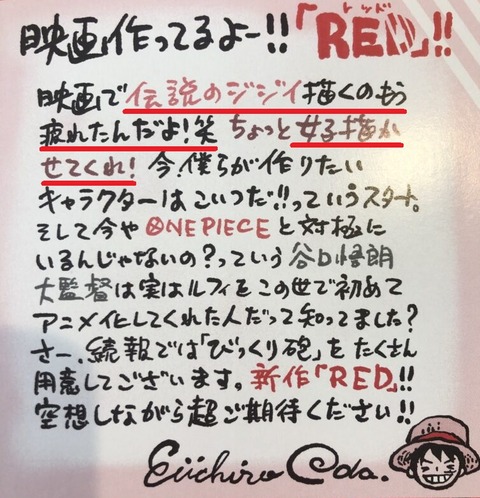 映画作ってるよー!!「RED」!!
レッド
映画で伝説のジジイ描くのもう
疲れたんだよ!笑 ちょっと女子描か
せてくれ! 今、僕らが作りたい
キャラクターはこいつだ!!っていうスタート。
そして今や ONE PIECE と対極に
いるんじゃないの?っていう谷口悟朗
大監督は実はルフィをこの世で初めて
アニメ化してくれた人だって知ってました?
さー、続報では「びっくり砲」をたくさん
用意してございます。新作「RED」!!
空想しながら超ご期待ください!!
Eiichiro Oda.